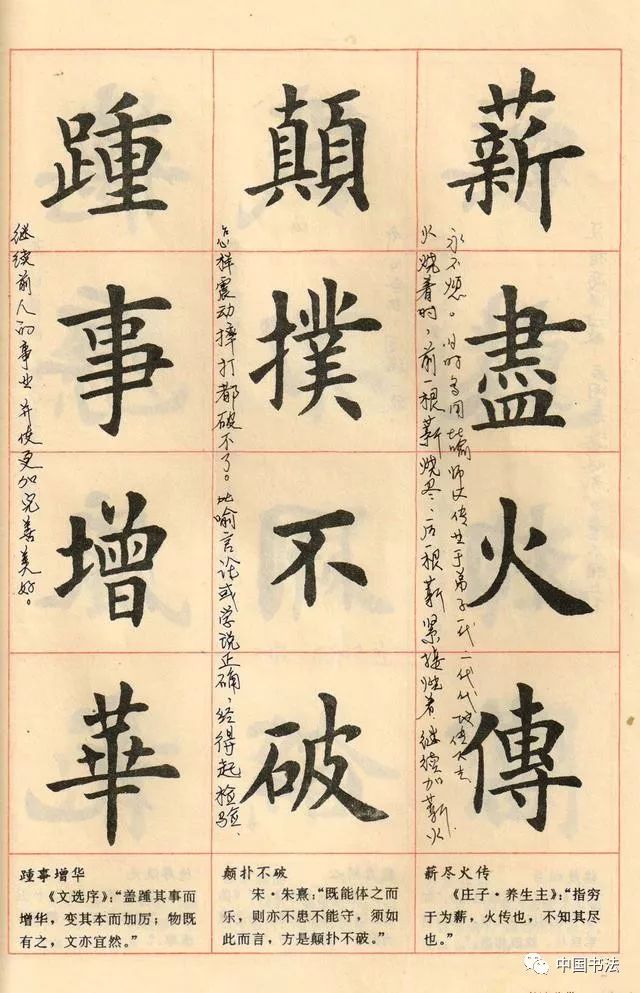 薪盡火傳
火烧着时，前一根薪烧尽，后一根薪紧接烧着，继续加薪，火
永不熄。旧时多用比喻师父传业于弟子一代一代地传下去
顛撲不破
怎样震动摔打都破不了。比喻言论或学说正确，经得起检验.
踵事增華
继续前人的事业并使更加完善美好。
薪尽火传
《庄子·养生主》：“指穷
于为薪，火传也，不知其尽
也。”
颠扑不破
宋·朱熹：“既能体之而
乐，则亦不患不能守，须如
此而言，方是颠扑不破。”
踵事增华
《文选序》：“盖踵其事而
增华，变其本而加厉；物既
有之，文亦宜然。”
中国书法